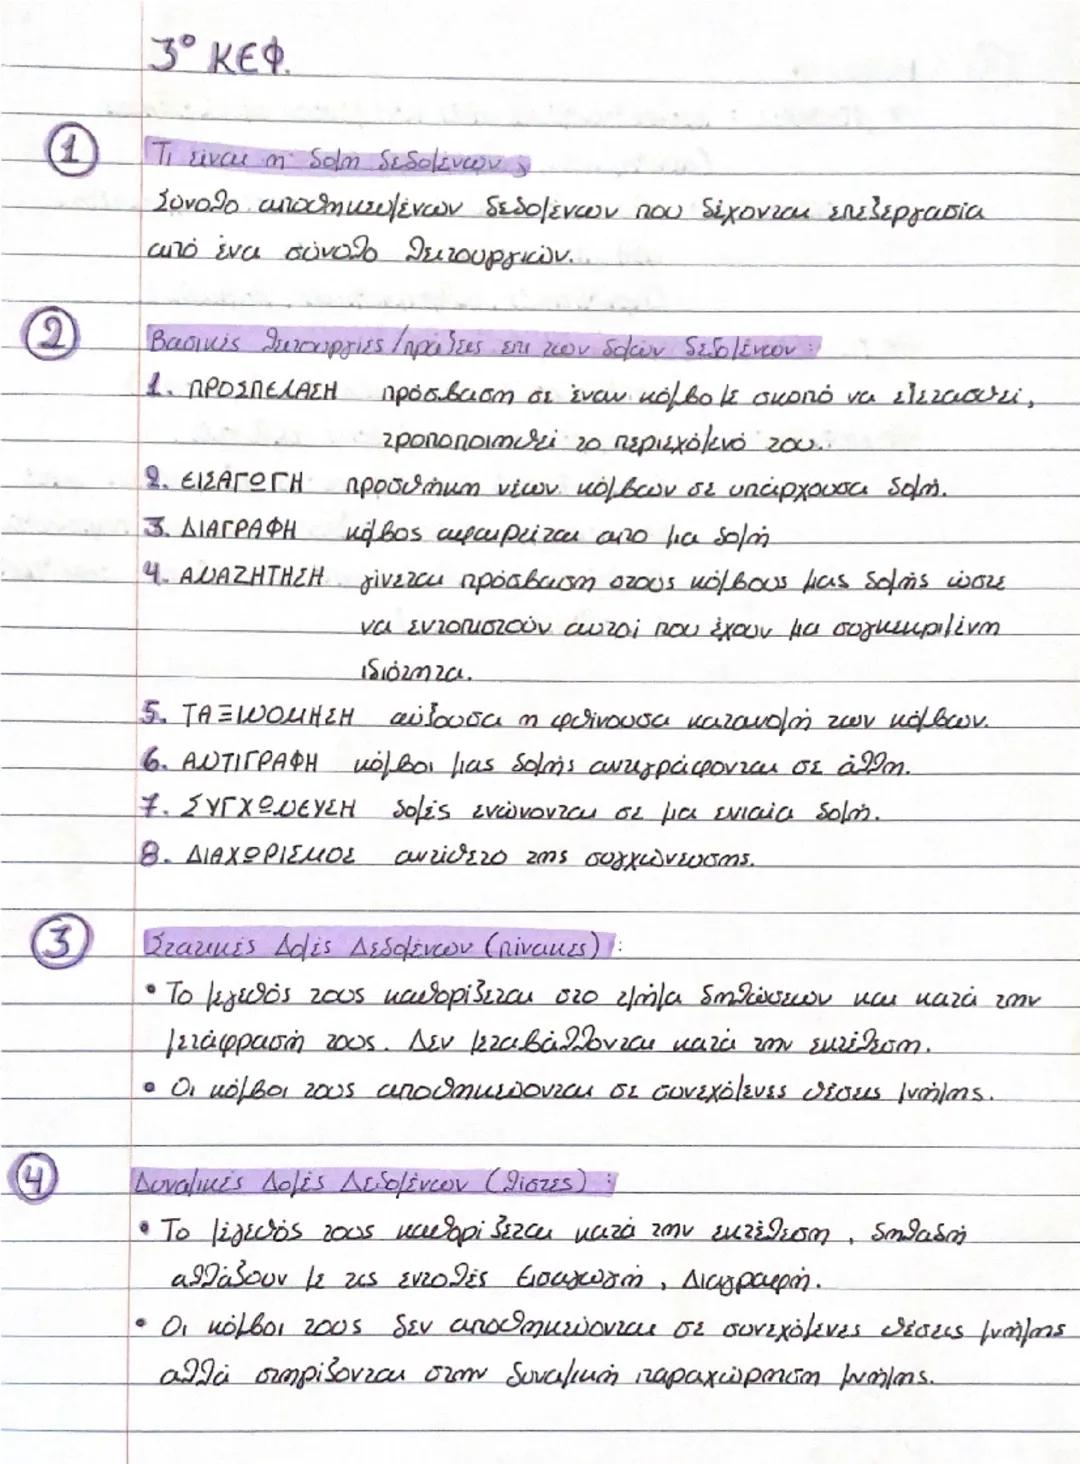 3° ΚΕΦ.
1 Τι είναι η δομή δεδομένων;
Σύνολο αποθηκευμένων δεδομένων που δέχονται επεξεργασία
από ένα σύνολο λειτουργιών.
2 Βασικές λειτουργίες/πράξεις επί των δομών δεδομένων:
1. ΠΡΟΣΠΕΛΑΣΗ πρόσβαση σε έναν κόμβο με σκοπό να εξετασθεί,
τροποποιηθεί το περιεχόμενό του.
2. ΕΙΣΑΓΩΓΗ προσθήκη νέων κόμβων σε υπάρχουσα δομή.
3. ΔΙΑΓΡΑΦΗ κόμβος αφαιρείται από μια δομή
4. ΑΝΑΖΗΤΗΣΗ γίνεται πρόσβαση στους κόμβους μιας δομής ώστε
να εντοπιστούν αυτοί που έχουν μια συγκεκριμένη
ιδιότητα.
5. ΤΑΞΙΝΟΜΗΣΗ αύξουσα η φθίνουσα κατανομή των κόμβων.
6. ΑΝΤΙΓΡΑΦΗ κόμβοι μιας δομής αντιγράφονται σε άλλη.
7. ΣΥΓΧΩΝΕΥΣΗ δομές ενώνονται σε μια ενιαία δομή.
8. ΔΙΑΧΩΡΙΣΜΟΣ αντίθετο της συγχώνευσης.
3 Στατικές Δομές Δεδομένων (πίνακες):
• Το μεγεθός τους καθορίζεται στο τμήμα δηλώσεων και κατά την
μετάφρασή τους. Δεν μεταβάλλονται κατά την εκτέλεση.
• Οι κόμβοι τους αποθηκεύονται σε συνεχόμενες θέσεις μνήμης.
4 Δυναμικές Δομές Δεδομένων (λίστες):
• Το μέγεθός τους καθορίζεται κατά την εκτέλεση, δηλαδή
αλλάζουν με τις εντολές Εισαγωγή, Διαγραφή.
• Οι κόμβοι τους δεν αποθηκεύονται σε συνεχόμενες θέσεις μνήμης
αλλά στηρίζονται στην δυναμική παραχώρηση μνήμης.